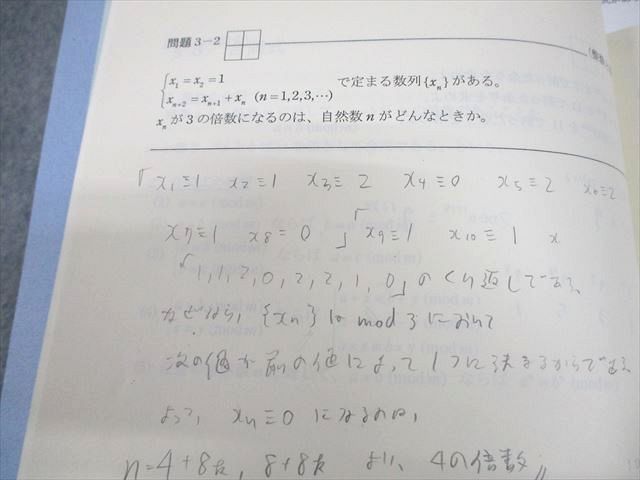 問題3-2
x₁ = x₂ = 1
で定まる数列{xₙ}がある。
xₙ₊₂ = xₙ₊₁ + xₙ (n=1,2,3,…)
xₙが3の倍数になるのは、自然数nがどんなときか。
「x₁≡1 x₂≡1 x₃≡2 x₄≡0 x₅≡2 x₆≡2
x₇≡1 x₈≡0」「x₉≡1 x₁₀≡1 x
「1,1,2,0,2,2,1,0」のくり返しである。
なぜなら、{xₙ}は mod 3 において
次の値が前の値によって1つに決まるからである
よって、xₙ≡0 になるのは、
n=4+8k, 8+8k より、4の倍数